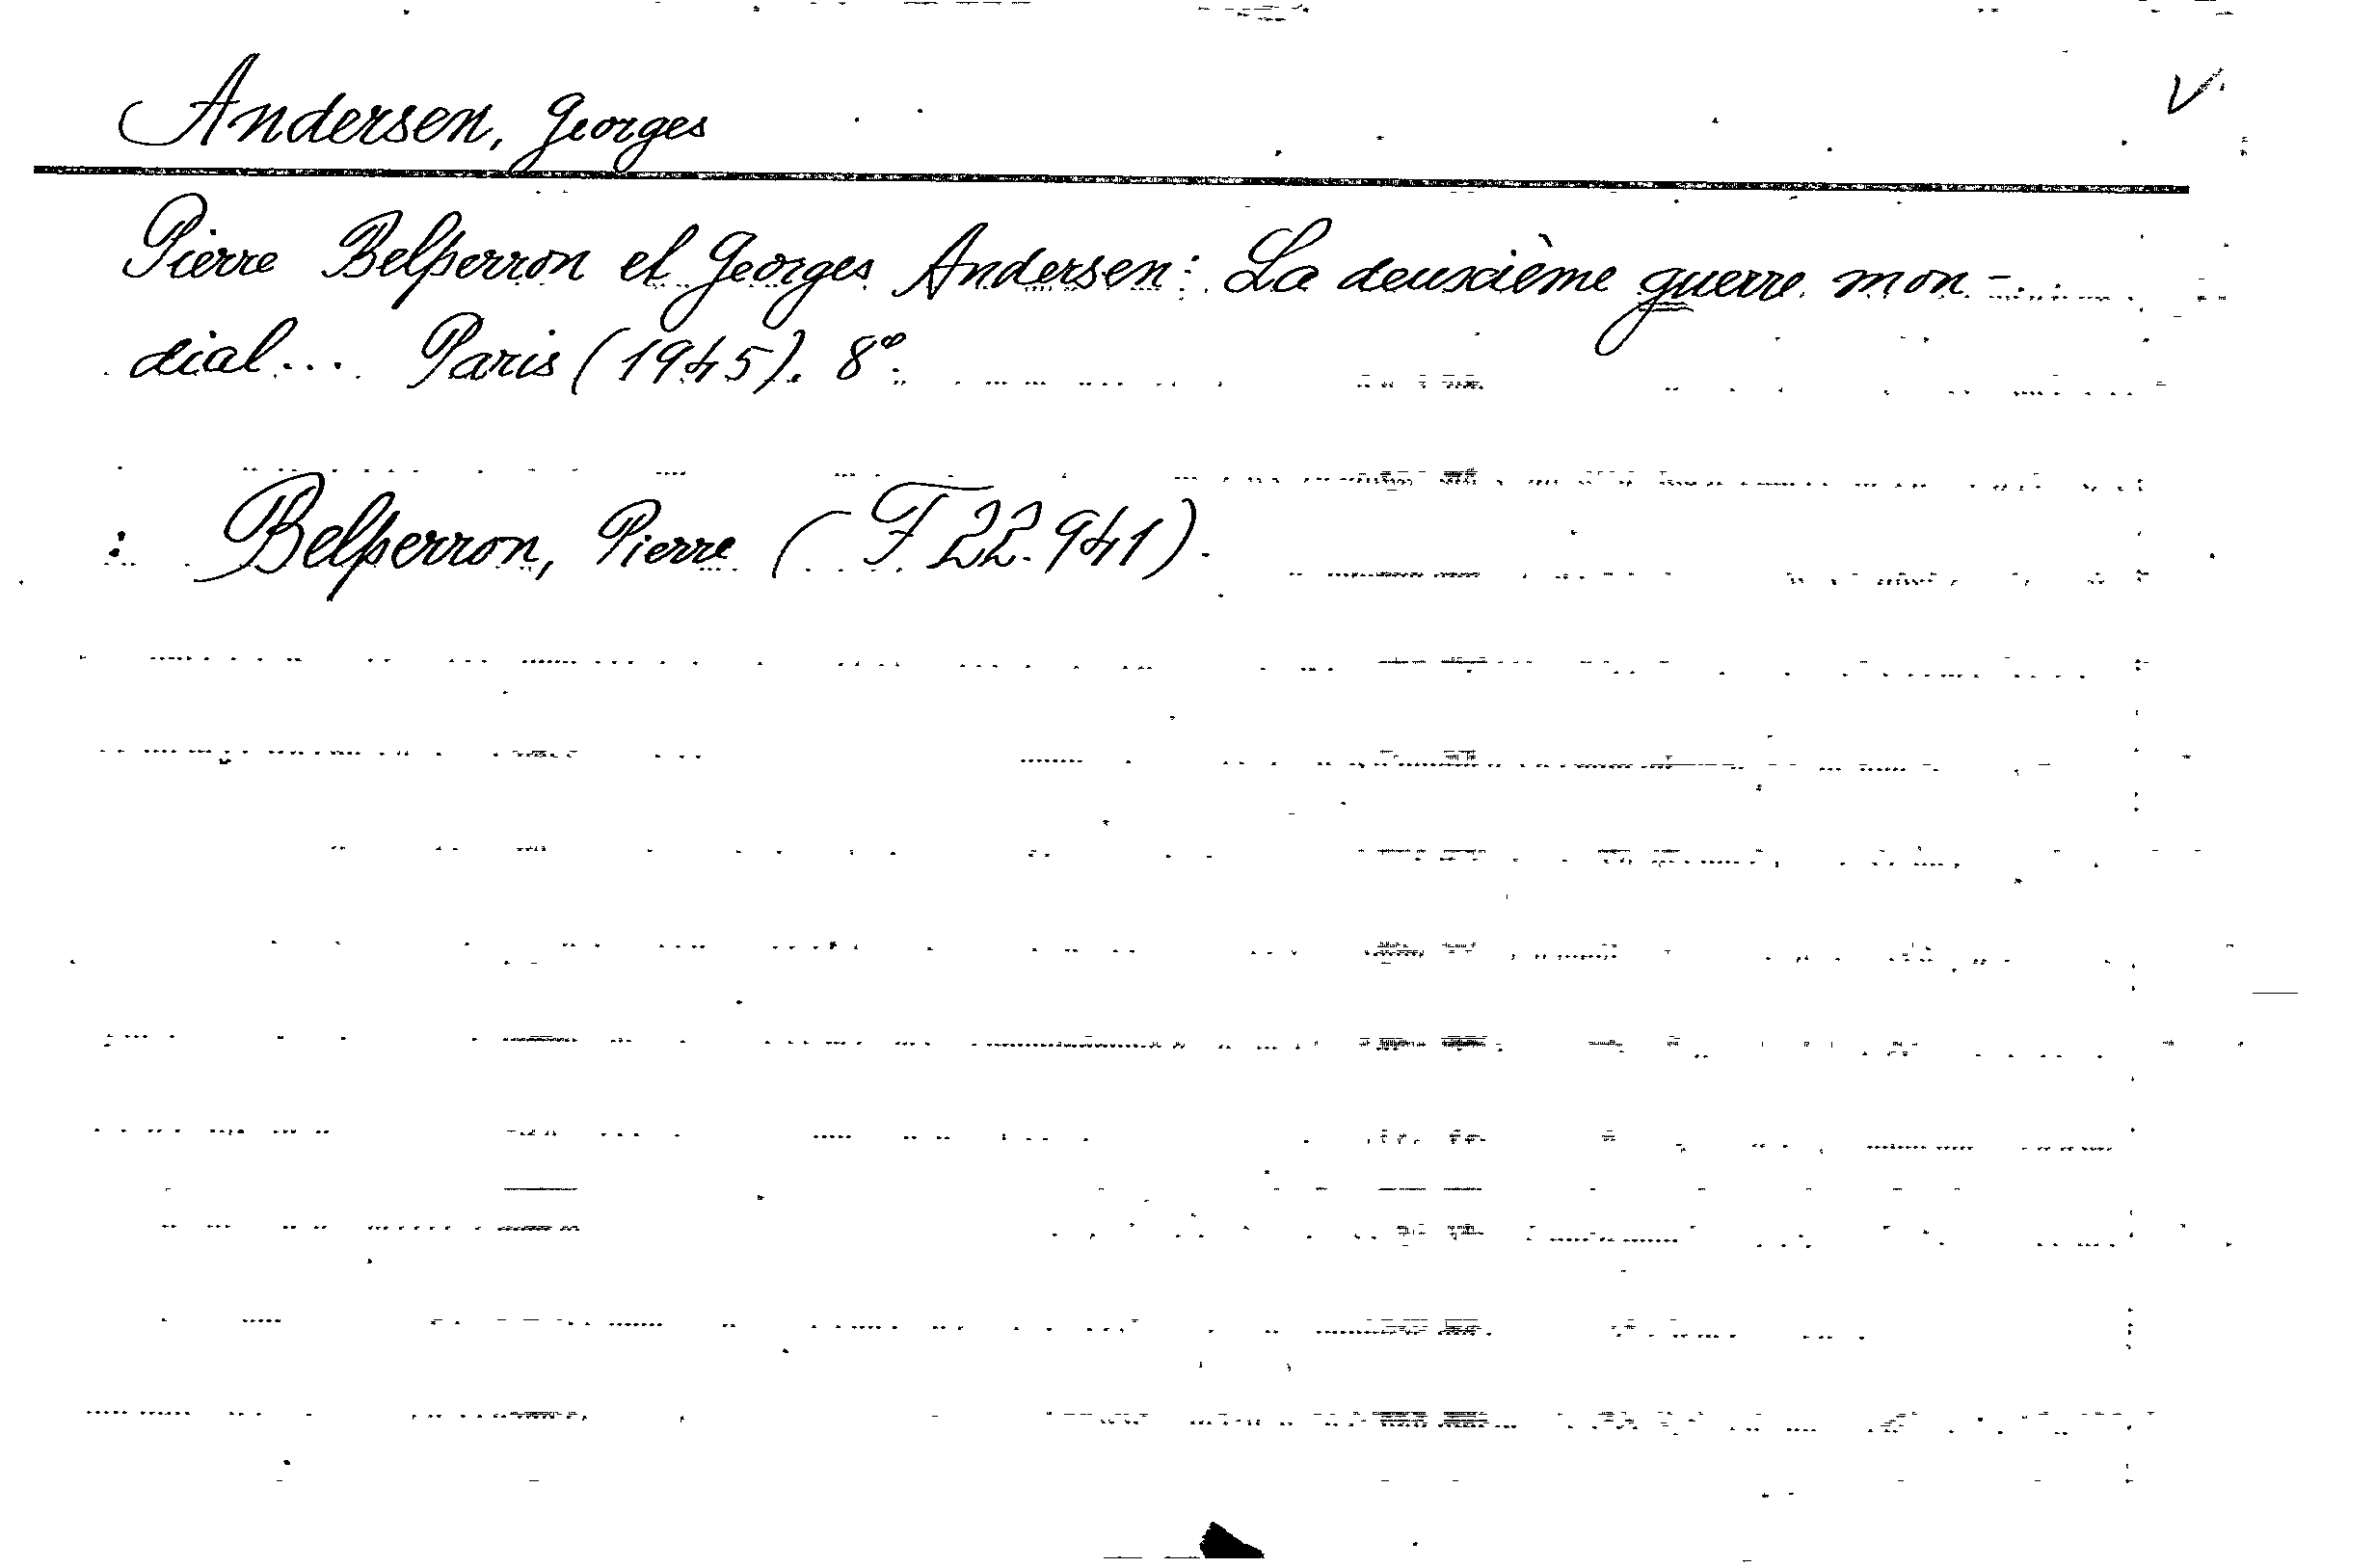 Andersen, Georges
Pierre Belperron et Georges Andersen: La deuxième guerre mon-
dial... Paris (1945). 8º.
: Belperron, Pierre (F 22.941).